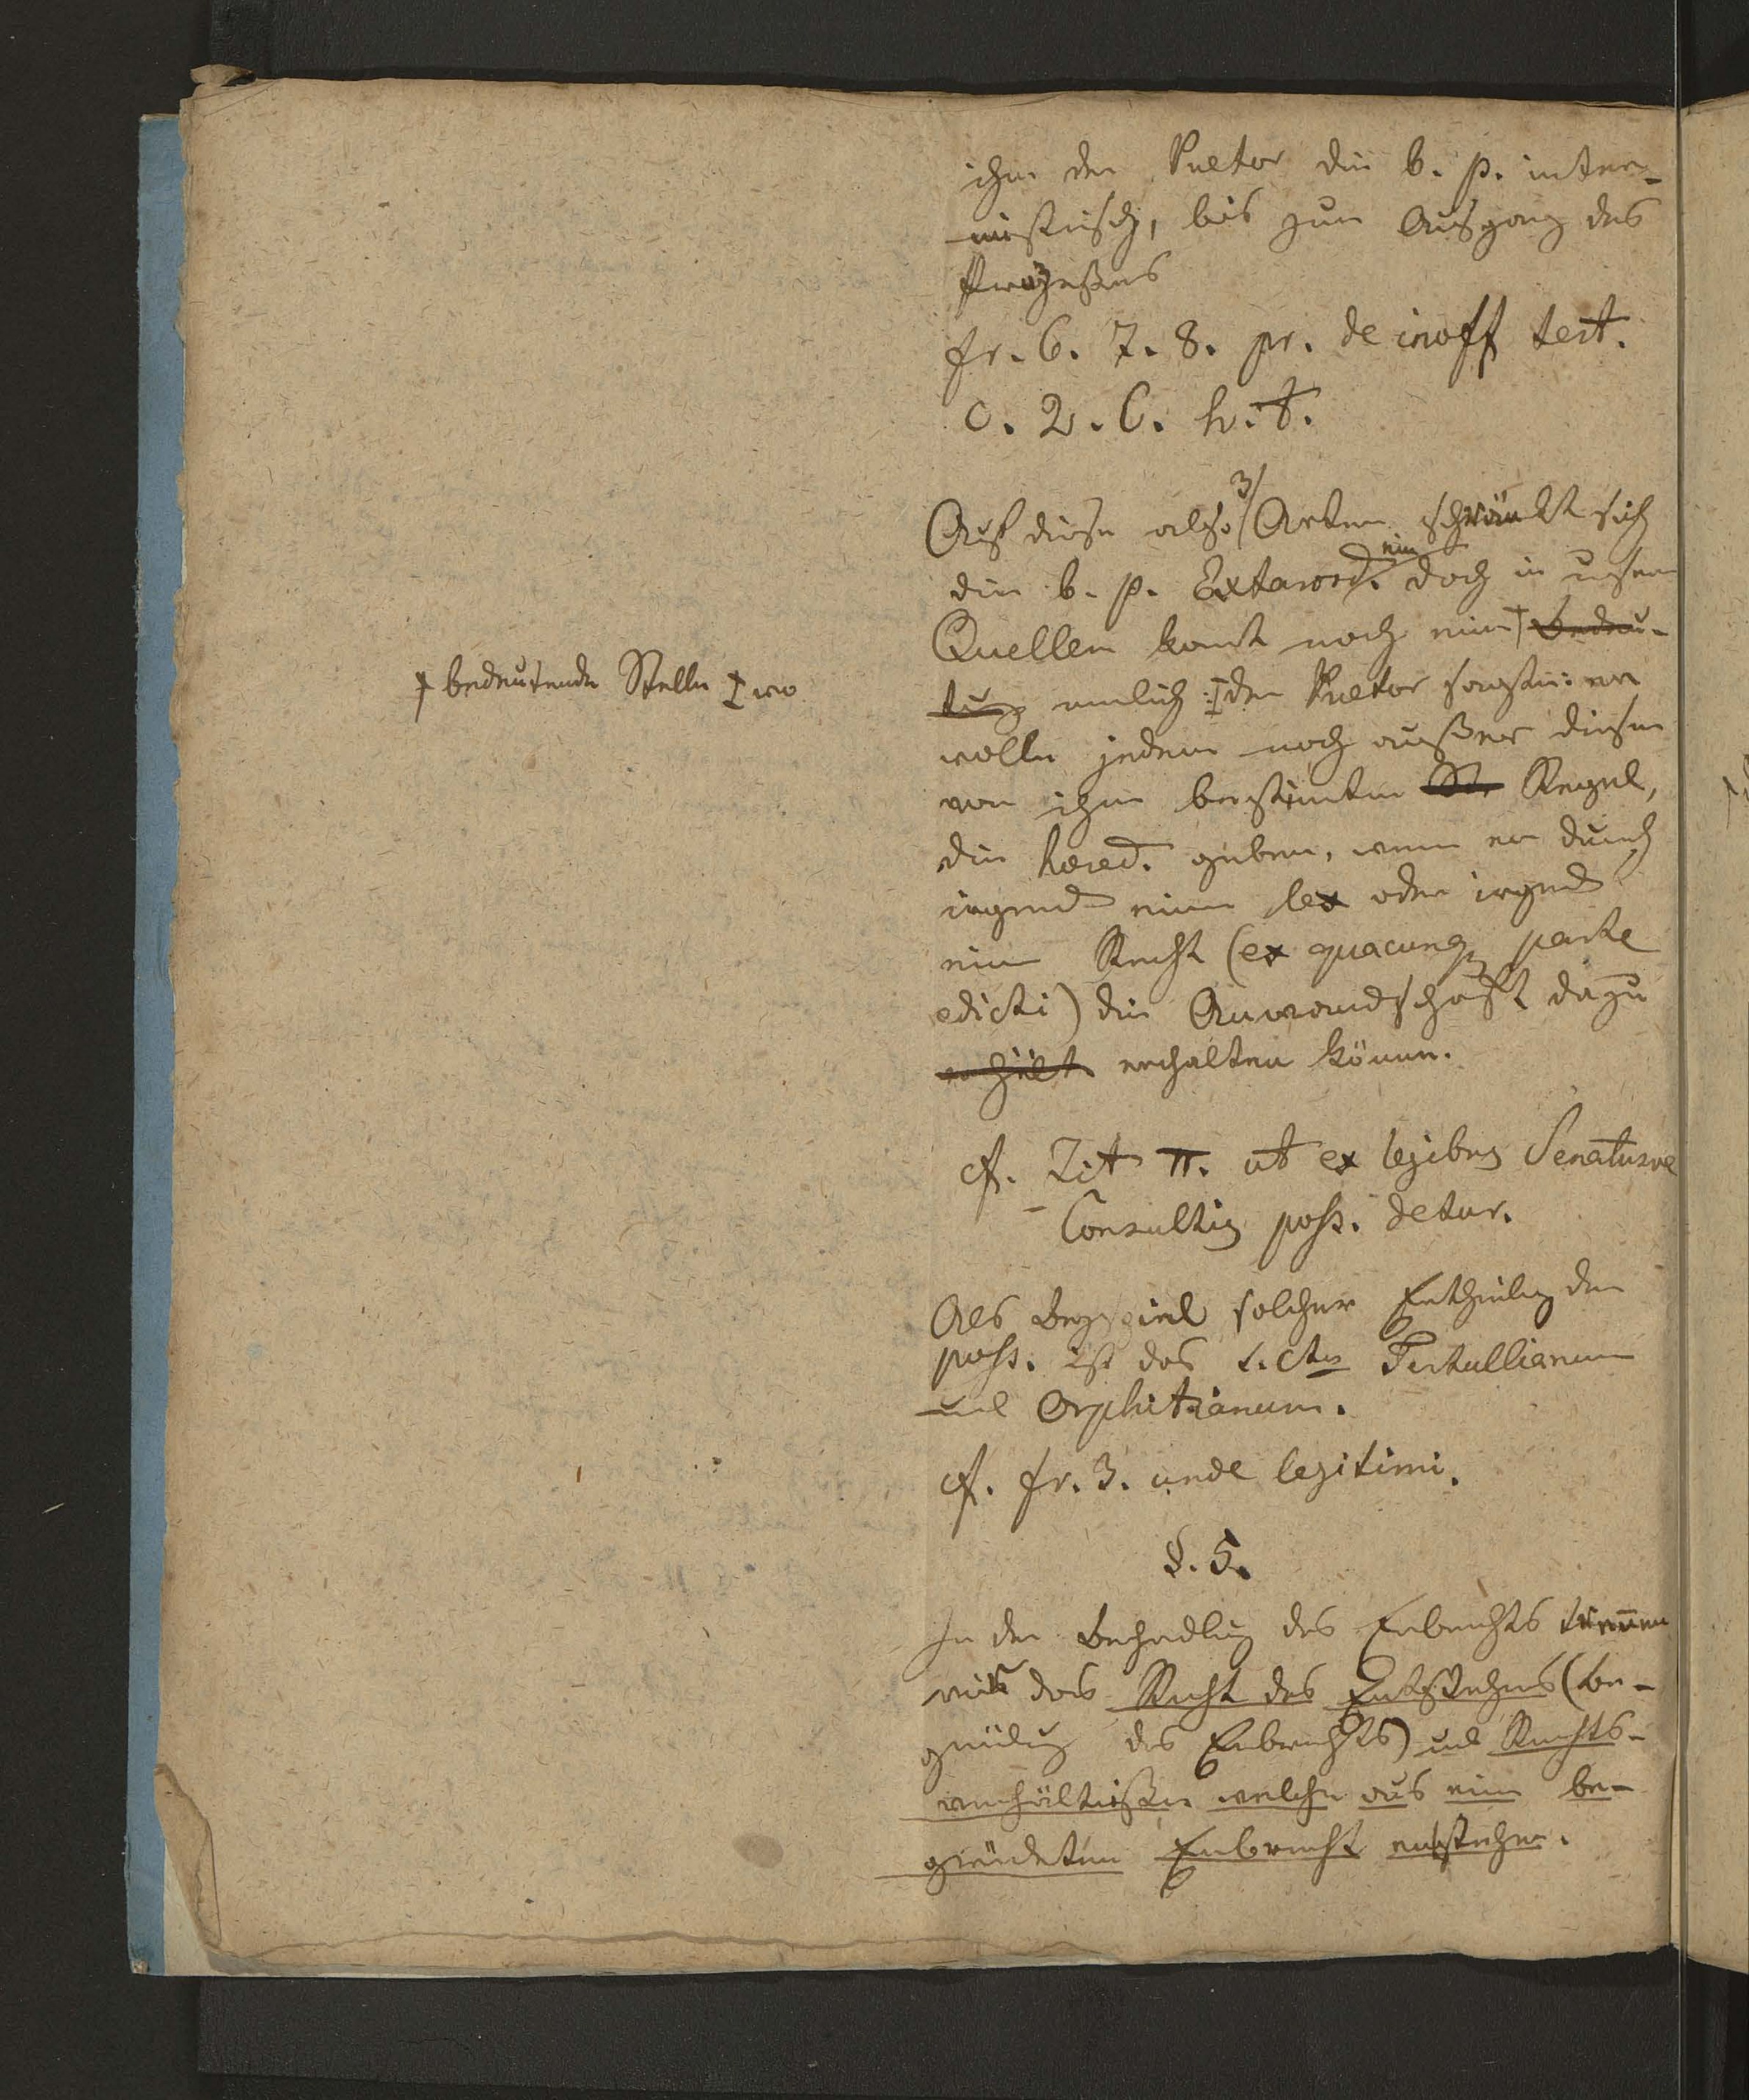 ihm der Praetor die b. p. inter-
mistisch, bis zum Ausgang des
Prozeßes
fr. 6. 7. 8. pr. de inoff test.
c. 2. C. h. t.
Auf diese also 3/ Arten schränkt sich
die b. p. Extaord. ein doch in unsern
Quellen komt noch eine † Bedeu-
tung nemlich: ‡ der Praetor sagt: er
wolle jedem noch außer diesen
von ihm bestimten Regel,
die hered. geben, wenn er durch
irgend eine lex oder irgend
ein Recht (ex quacunq parte
edicti) die Anwandschaft dazu
erhält erhalten könne.
† bedeutende Stelle ‡ wo
cf. Tit π. ut ex legibus Senatusve
Consultis poss. detur.
Als Beyspiel solcher Ertheilung der
poss. ist das S.Ctum Tertullianum
und Orphitianum.
cf. fr. 3. unde legitimi.
§. 5.
In der Behandlung des Erbrechts trennen
wir das Recht des Entstehens (Be-
gründung des Erbrechts) und Rechts-
verhältniße welche aus eine be-
gründeten Erbrecht entstehen.